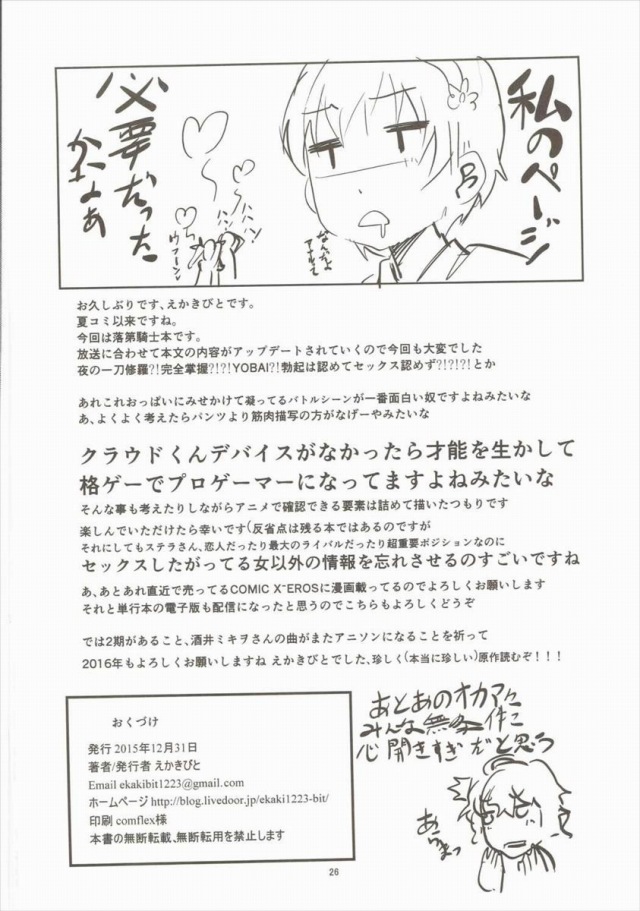 私のページ
必要だった
かなぁ
ハハハン
ハハン!
ウフーン
なんだよ
お久しぶりです、えかきびとです。
夏コミ以来ですね。
今回は落第騎士本です。
放送に合わせて本文の内容がアップデートされていくので今回も大変でした
夜の一刀修羅?!完全掌握?!?!YOBAI?!勃起は認めてセックス認めず?!?!?!とか
あれこれおっぱいにみせかけて凝ってるバトルシーンが一番面白い奴ですよねみたいな
あ、よくよく考えたらパンツより筋肉描写の方がなげーやみたいな
クラウドくんデバイスがなかったら才能を生かして
格ゲーでプロゲーマーになってますよねみたいな
そんな事も考えたりしながらアニメで確認できる要素は詰めて描いたつもりです
楽しんでいただけたら幸いです(反省点は残る本ではあるのですが
それにしてもステラさん、恋人だったり最大のライバルだったり超重要ポジションなのに
セックスしたがってる女以外の情報を忘れさせるのすごいですね
あ、あとあれ直近で売ってるCOMIC X-EROSに漫画載ってるのでよろしくお願いします
それと単行本の電子版も配信になったと思うのでこちらもよろしくどうぞ
では2期があること、酒井ミキヲさんの曲がまたアニソンになることを祈って
2016年もよろしくお願いしますね えかきびとでした、珍しく(本当に珍しい)原作読むぞ!!!
あとあのオカマに
みんな無条件に
心開きすぎだと思う
あらまっ
おくづけ
発行 2015年12月31日
著者/発行者 えかきびと
Email ekakibit1223@gmail.com
ホームページ http://blog.livedoor.jp/ekaki1223-bit/
印刷 comflex様
本書の無断転載、無断転用を禁止します
26